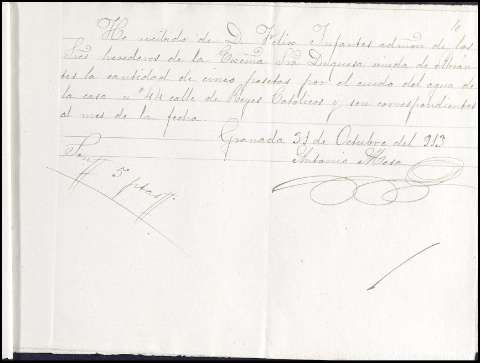 10
He recibido de D. Felix Infantes admon de los
Sres herederos de la Excma Sra Duquesa viuda de Abran
tes la cantidad de cinco pesetas por el cuido del agua de
la casa nº 44 calle de Reyes Catolicos y son correspondientes
al mes de la fecha.
Granada 31 de Octubre del 913
Antonio Mesa
Son 5 ptas